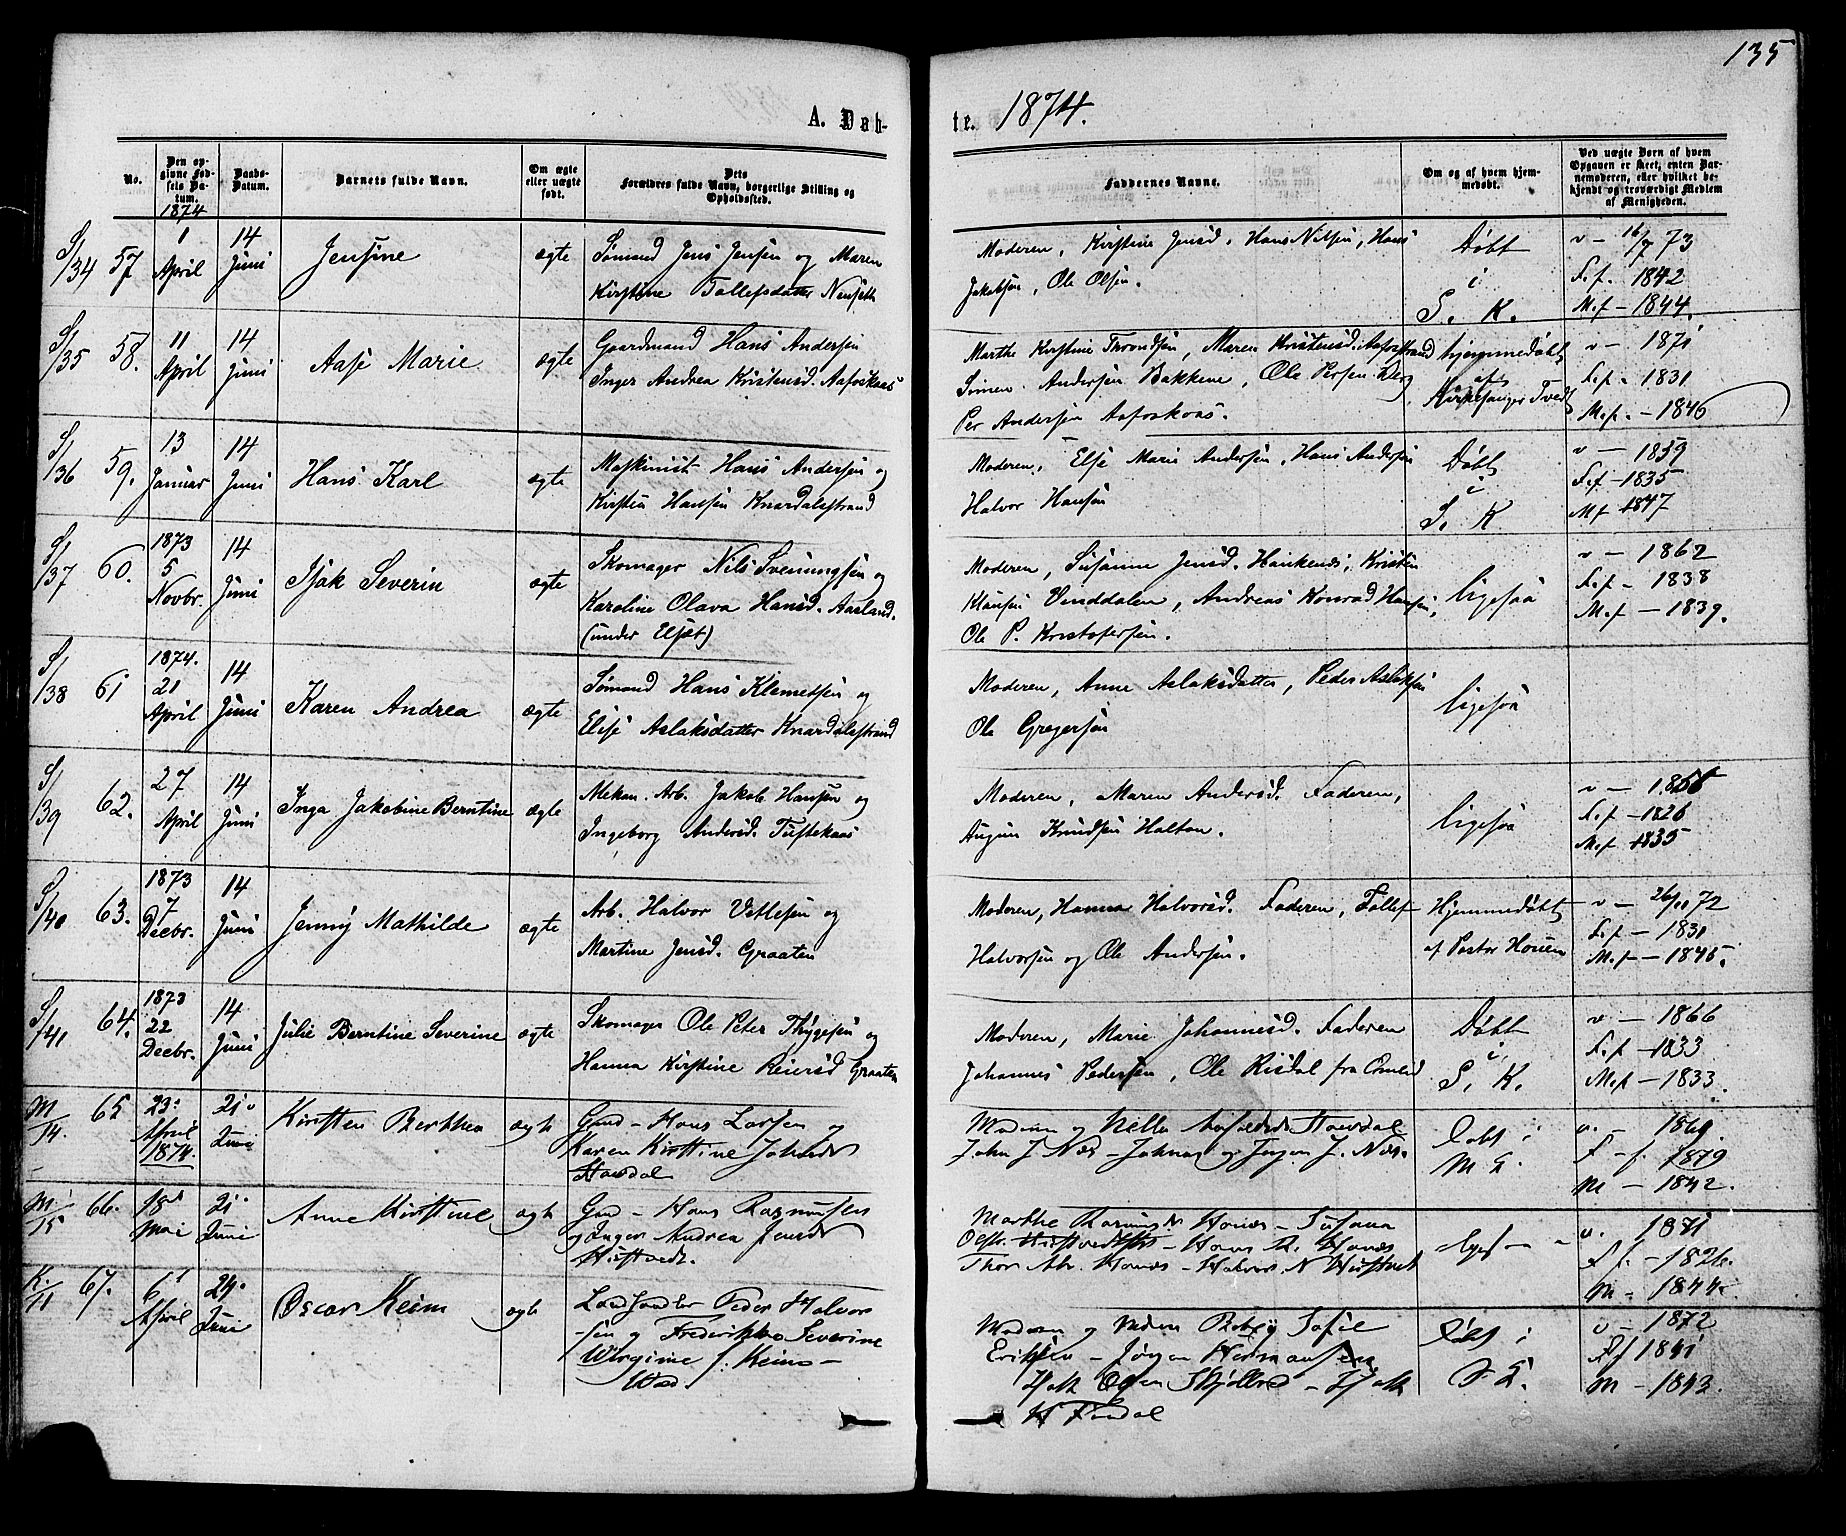 135
A. Døb-
te. 1874.
No.
Den op-
givne Fød-
sels Da-
tum.
1874
Daabs-
Datum.
Barnets fulde Navn.
Om ægte
eller uægte
født.
Dets
Forældres fulde Navn, borgerlige Stilling og
Opholdssted.
Faddernes Navne.
Om og af hvem hjem-
medøbt.
Ved uægte Børn af hvem
Opgaven er skeet, enten Bar-
nemoderen, eller hvilket be-
kjendt og troværdigt Medlem
af Menigheden.
S/34 57.
1
April
14
Juni
Jensine
ægte
Sømand Jens Jensen og Maren
Kirstine Tollefsdatter
Moderen, Kirstine Jensd. Hans Nilsen, Hans
Jakobsen, Ole Olsen.
Døbt
i
S. K.
v – 16/7 73
F. f. – 1842
M. f – 1844.
S/35 58.
11
April
14
Juni
Aase Marie
ægte
Gaardmand Hans Andersen
Inger Andrea Kristensd. Aafoskaas
Marthe Kirstine Trondsen, Maren Kristensd. Aafosstrand
Simen Andersen Bakkene, Ole Persen Berg
Per Andersen Aafoskaas.
hjemmedøbt
af
Kirkesanger Tvedt
v – 1871
F. f. – 1831
M. f. – 1846
S/36 59.
13
Januar
14
Juni
Hans Karl
ægte
Maskinist Hans Andersen og
Kirsten Hansen Knardalsstrand
Moderen, Else Marie Andersen, Hans Andersen
Halvor Hansen
Døbt
i
S. K
v – 1839
F. f – 1835
M f – 1847
S/37 60.
1873
5
Novbr.
14
Juni
Isak Severin
ægte
Skomager Nils Svenungsen og
Karoline Olava Hansd. Aasland.
(under Elset)
Moderen, Susanne Jensd. Haukenes, Kristen
Klausen Vinddalen, Andreas Konrad Hansen,
Ole P. Kristofersen.
ligesaa
v – 1862
F. f – 1838
M. f – 1839.
S/38 61
1874.
21
April
14
Juni
Karen Andrea
ægte
Sømand Hans Klemedsen og
Elise Aslaksdatter Knardalsstrand
Moderen, Anne Aslaksdatter, Peder Aslaksen
Ole Gregersen
ligesaa
S/39 62.
27
April
14
Juni
Inga Jakobine Berntine
ægte
Mekan. Arb. Jakob Hansen og
Ingeborg Andersd. Tuftekaas
Moderen, Maren Andersd. Faderen,
Augun Knudsen Holton.
ligesaa
v – 1856
F. f – 1826
M. f – 1835
S/40 63.
1873
7
Decbr.
14
Juni
Jenny Mathilde
ægte
Arb. Halvor Vetlesen og
Martine Jensd. Graaten
Moderen, Hanna Halvorsd. Faderen, Tollef
Halvorsen og Ole Andersen.
Hjemmedøbt
af Pastor Houen
v – 26/11 72
F. f – 1831
M. f – 1845.
S/41 64.
1873
22
Decbr.
14
Juni
Julie Berntine Severine
ægte
Skomager Ole Peter Thygesen og
Hanna Kirstine Reiersd Graaten
Moderen, Marie Johannesd. Faderen
Johannes Pedersen, Ole Risdal fra Omlid
Døbt
i
S. K.
v – 1866
F. f – 1833
M. f – 1833.
M/14. 65
23.
April
1874.
21.
Juni
Kirsten Berthea
ægte
Gmd – Hans Larsen og
Karen Kirstine Johnsd
Moderen og
John J. Næs –
Døbt i
M K.
v. – 1869.
F – f. 1879
M – 1842.
M/15 66.
18
Mai
21.
Juni
Anne Kirstine
ægte
Gmd – Hans Rasmussen
og Inger Andrea Jensd
Marthe
Døbt i
v. 1871
F f. – 1826.
M – 1844.
K./11 67.
6
April
24.
Juni
Oscar Keim
ægte
Landhandler Peder Halvor-
sen og Frederikke Severine
Wirgine f. Keim –
Moderen og
Eriksen – Jørgen Hermansen
Døbt i
v – 1872
F f 1841
M – 1843.